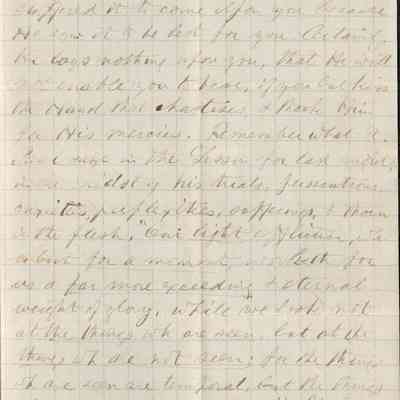 suffered it to come upon you because
He saw it to be best for you. Certainly
He lays nothing upon you, that He will
not enable you to bear, if you but kiss
the Hand that chastises, & thank Him
for His mercies. Remember what St.
Paul says in the Lesson for last Sunday
in the midst of his trials, persecutions
anxieties, perplexities, sufferings, & thorn
in the flesh, "Our light affliction, wh
is but for a moment, worketh for
us a far more exceeding & eternal
weight of glory, while we look not
at the things wh are seen, but at the
things wh are not seen; for the things
wh are seen are temporal, but the things